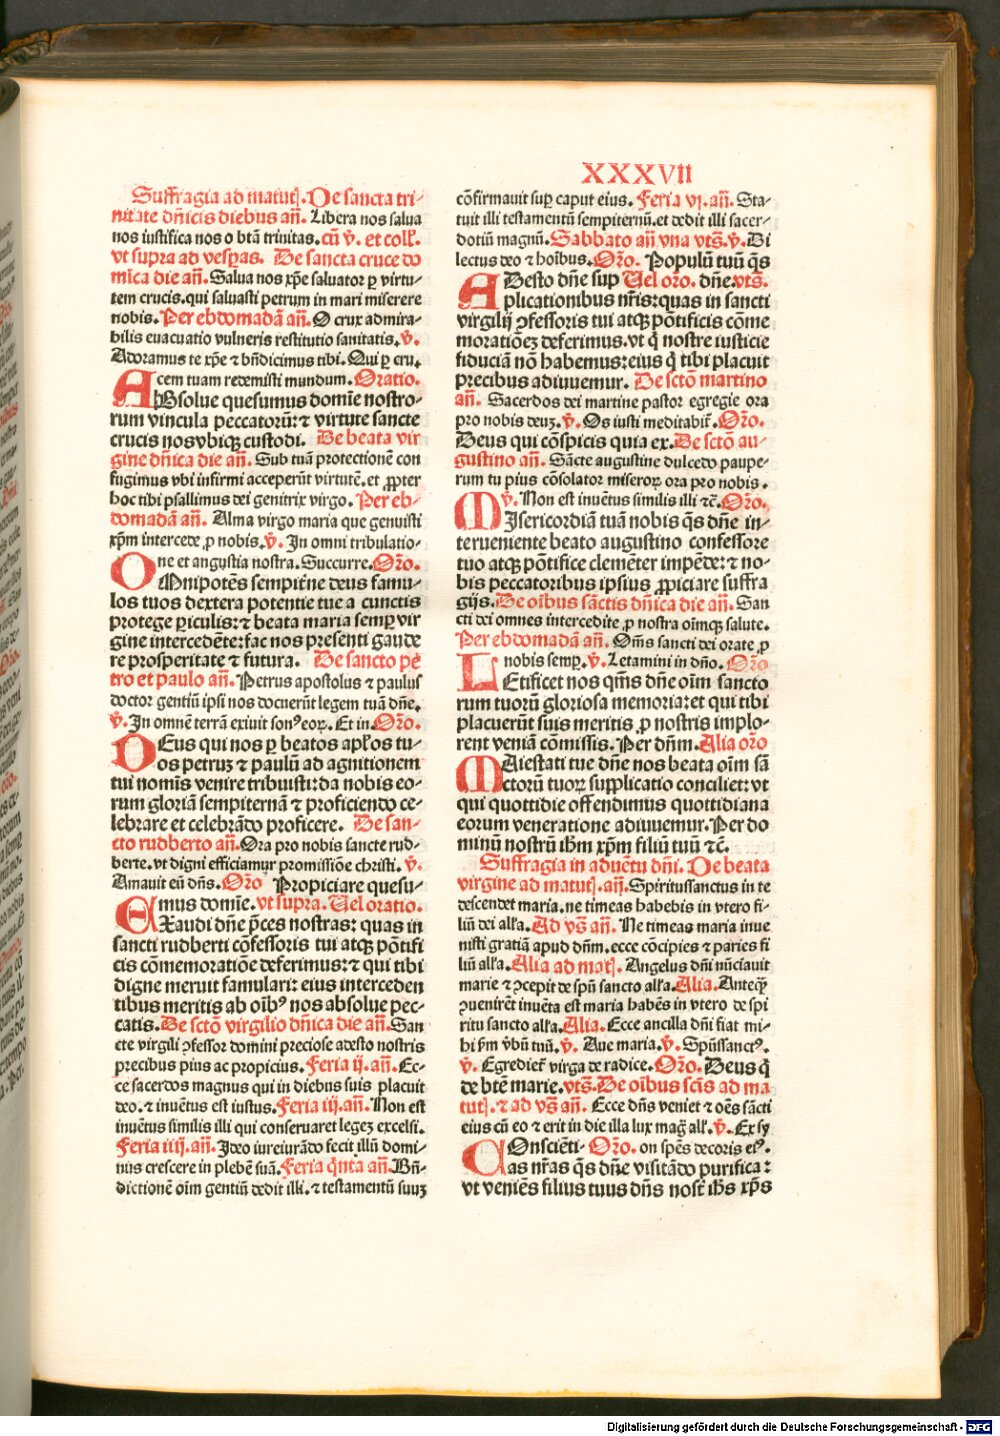 XXXVII
Suffragia ad matut̄. De sancta tri-
nitate dn̄icis diebus an̄. Libera nos salua
nos iustifica nos o bt̄a trinitas. cū v̄. et coll̄.
vt supra ad vesꝑas. De sancta cruce do
mīca die an̄. Salua nos xp̄e saluator ꝑ virtu-
tem crucis. qui saluasti petrum in mari miserere
nobis. Per ebdomadā an̄. O crux admira-
bilis euacuatio vulneris restitutio sanitatis. v̄.
Adoramus te xp̄e ⁊ bn̄dicimus tibi. Qui ꝑ cru-
cem tuam redemisti mundum. Oratio.
ABsolue quesumus domīe nostro-
rum vincula peccatorū: ⁊ virtute sancte
crucis nos vbiqꝫ custodi. De beata vir
gine dn̄ica die an̄. Sub tuā protectionē con
fugimus vbi infirmi acceperūt virtutē. et ꝓpter
hoc tibi psallimus dei genitrix virgo. Per eb-
domadam an̄. Alma virgo maria que genuisti
xp̄m intercede ꝓ nobis. v̄. In omni tribulatio-
ne et angustia nostra. Succurre. Or̄o.
OMnipotēs sempitēne deus famu-
los tuos dextera potentie tue a cunctis
protege ꝑiculis: ⁊ beata maria semꝑ vir
gine intercedēte: fac nos presenti gaude
re prosperitate ⁊ futura. De sancto pe
tro et paulo an̄. Petrus apostolus ⁊ paulus
doctor gentiū ipsi nos docuerūt legem tuā dn̄e.
v̄. In omnē terrā exiuit sonꝰ eoꝝ. Et in. Or̄o.
DEus qui nos ꝑ beatos apl̄os tu-
os petruꝫ ⁊ paulū ad agnitionem
tui nomīs venire tribuisti: da nobis eo-
rum gloriā sempiternā ⁊ proficiendo ce-
lebrare et celebrādo proficere. De san-
cto rudberto an̄. Ora pro nobis sancte rud-
berte. vt digni efficiamur promissiōe christi. v̄.
Amauit eū dn̄s. Or̄o Propiciare quesu-
mus domīe. vt supra. Uel oratio.
EXaudi dn̄e p̄ces nostras: quas in
sancti rudberti cōfessoris tui atqꝫ pōtifi
cis cōmemoratiōe deferimus: ⁊ qui tibi
digne meruit famulari: eius interceden
tibus meritis ab oībꝰ nos absolue pec-
catis. De sctō virgilio dn̄ica die an̄. San
cte virgili ꝯfessor domini preciose adesto nostris
precibus pius ac propicius. Feria ij. an̄. Ec-
ce sacerdos magnus qui in diebus suis placuit
deo. ⁊ inuētus est iustus. Feria iij. an̄. Non est
inuētus similis illi qui conseruaret legeꝫ excelsi.
Feria iiij. an̄. Ideo iureiurādo fecit illū domi-
nus crescere in plebē suā. Feria q̄nta an̄. Bn̄-
dictionē oīm gentiū dedit illi. ⁊ testamentū suuꝫ
cōfirmauit suꝑ caput eius. Feria vj. an̄. Sta-
tuit illi testamentū sempiternū. et dedit illi sacer-
dotiū magnū. Sabbato an̄ vna vts̄. v̄. Di
lectus deo ⁊ hoībus. Or̄o. Populū tuū q̄s
dn̄e. vts̄. Uel or̄o.
ADesto dn̄e sup
plicationibus nr̄is: quas in sancti
virgilij ꝯfessoris tui atqꝫ pōtificis cōme
moratiōeꝫ deferimus. vt q̄ nostre iusticie
fiduciā nō habemus: eius q̄ tibi placuit
precibus adiuuemur. De sctō martino
an̄. Sacerdos dei martine pastor egregie ora
pro nobis deuꝫ. v̄. Os iusti meditabit̄. Or̄o.
Deus qui cōspicis quia ex. De sctō au-
gustino an̄. Sācte augustine dulcedo paupe-
rum tu pius cōsolator miseroꝝ ora pro nobis.
v̄. Non est inuētus similis illi ⁊c̄. Or̄o.
MIsericordiā tuā nobis q̄s dn̄e in-
terueniente beato augustino confessore
tuo atqꝫ pōtifice clemēter impēde: ⁊ no-
bis peccatoribus ipsius ꝓpiciare suffra
gijs. De oībus sāctis dn̄ica die an̄. San
cti dei omnes intercedite ꝓ nostra oīmqꝫ salute.
Per ebdomadā an̄. Om̄s sancti dei orate ꝓ
nobis semꝑ. v̄. Letamini in dn̄o. Or̄o
LEtificet nos qm̄s dn̄e oīm sancto
rum tuorū gloriosa memoria: et qui tibi
placuerūt suis meritis ꝓ nostris implo-
rent veniā cōmissis. Per dn̄m. Alia or̄o
MAiestati tue dn̄e nos beata oīm sā
ctorū tuoꝝ supplicatio conciliet: vt
qui quottidie offendimus quottidiana
eorum veneratione adiuuemur. Per do
minū nostrū ih̄m xp̄m filiū tuū ⁊c̄.
Suffragia in aduētu dn̄i. De beata
virgine ad matut̄. an̄. Spiritussanctus in te
descendet maria. ne timeas habebis in vtero fi-
liū dei all̄a. Ad vs̄ an̄. Ne timeas maria inue
nisti gratiā apud dn̄m. ecce cōcipies ⁊ paries fi
liū all̄a. Alia ad mat̄. Angelus dn̄i nūciauit
marie ⁊ ꝯcepit de spū sancto all̄a. Alia. Anteq̄ꝫ
ꝯuenirēt inuēta est maria habēs in vtero de spi
ritu sancto all̄a. Alia. Ecce ancilla dn̄i fiat mi-
hi ẜm vb̄ū tuū. v̄. Aue maria. v̄. Spūssanctꝰ.
v̄. Egrediet̄ virga de radice. Or̄o. Deus q̄
de bt̄e marie. vts̄. De oībus sc̄is ad ma
tut̄. ⁊ ad vs̄ an̄. Ecce dn̄s veniet ⁊ oēs sācti
eius cū eo ⁊ erit in die illa lux maḡ all̄. v̄. Ex sy
on spēs decoris eiꝰ. Or̄o.
COnsciēti-
as nr̄as q̄s dn̄e visitādo purifica:
vt veniēs filius tuus dn̄s nost̄ ih̄s xp̄s
Digitalisierung gefördert durch die Deutsche Forschungsgemeinschaft - DFG